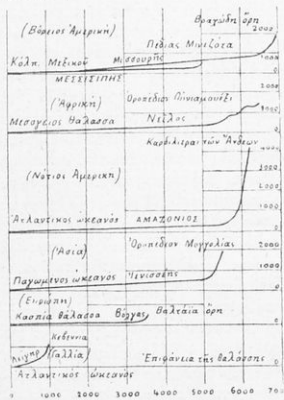 Βραχώδη ὄρη
(Βόρειος Ἀμερική)
2000
Πεδιὰς Μινεζότα
Κόλπ. Μεξικοῦ Μισσουρῆς
1000
ΜΕΣΣΙΣΙΠΗΣ
0
2000
(Ἀφρική)
Ὀροπέδιον
Μεσόγειος θάλασσα Νεῖλος
1000
0
Κορδιλιέραι τῶν Ἄνδεων
4000
3000
(Νότιος Ἀμερική)
2000
1000
Ἀτλαντικὸς ὠκεανός ΑΜΑΖΟΝΙΟΣ
0
(Ἀσία)
Ὀροπέδιον Μογγολίας
2000
1000
Παγωμένος ὠκεανός Ἰενισσέης
0
(Εὐρώπη)
Κασπία θάλασσα Βόλγας Βαλτάϊα ὄρη
0
Κεβέννια
Λίγηρ
(Γαλλία)
Ἐπιφάνεια τῆς θαλάσσης
0
Ἀτλαντικὸς ὠκεανός
0 1000 2000 3000 4000 5000 6000 700